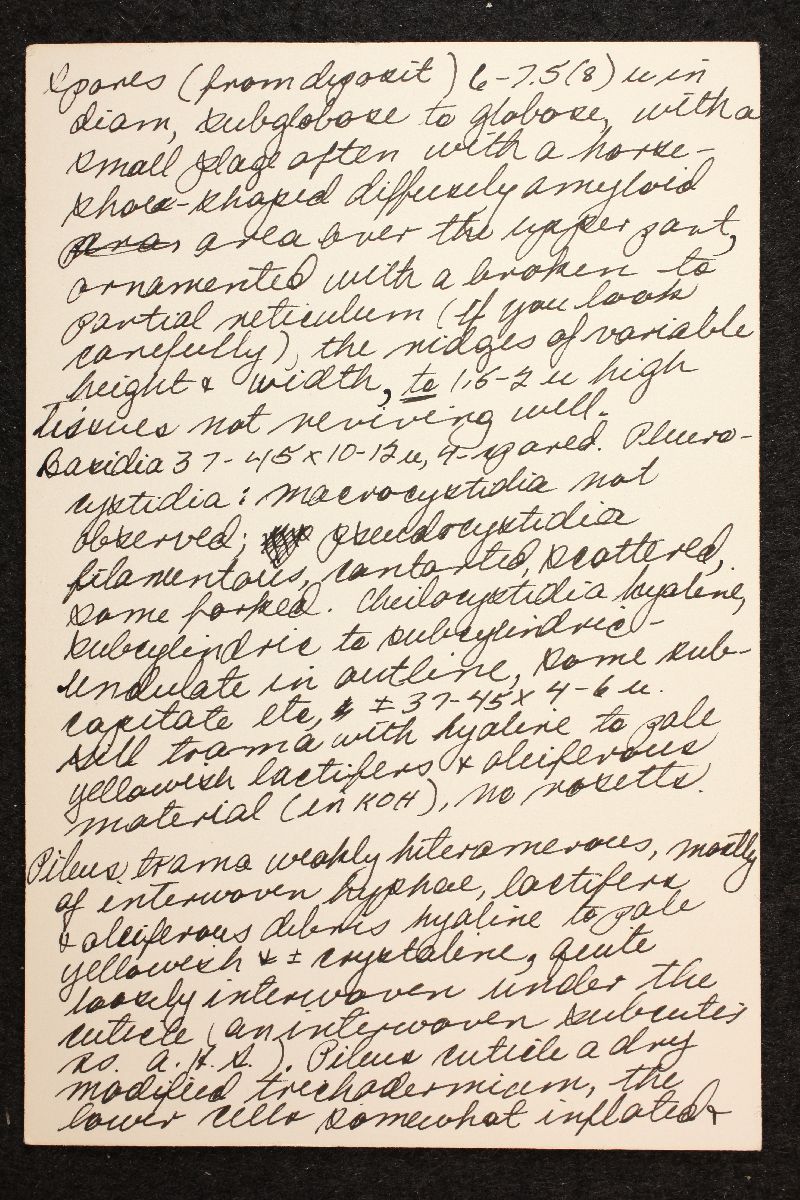 Spores (from deposit) 6-7.5(8) u in
diam, subglobose to globose, with a
small plage often with a horse-
shoe-shaped diffusely amyloid
area over the upper part,
ornamented with a broken to
partial reticulum (if you look
carefully), the ridges of variable
height & width, to 1.5-2 u high
Tissues not reviving well.
Basidia 37-45 x 10-12 u, 4-spored. Pleuro-
cystidia: macrocystidia not
observed; pseudocystidia
filamentous, contorted, scattered,
some forked. Cheilocystidia hyaline,
subcylindric to subcylindric-
undulate in outline, some sub-
capitate etc, ± 37-45 x 4-6 u.
Gill trama with hyaline to pale
yellowish lactifers & oleiferous
material (in KOH), no rosetts.
Pileus trama weakly heteromerous, mostly
of interwoven hyphae, lactifers
& oleiferous debris hyaline to pale
yellowish & ± crystalene, quite
loosely interwoven under the
cuticle (an interwoven subcutis
so. a. H. S.). Pileus cuticle a dry
modified trichodermium, the
lower cells somewhat inflated &